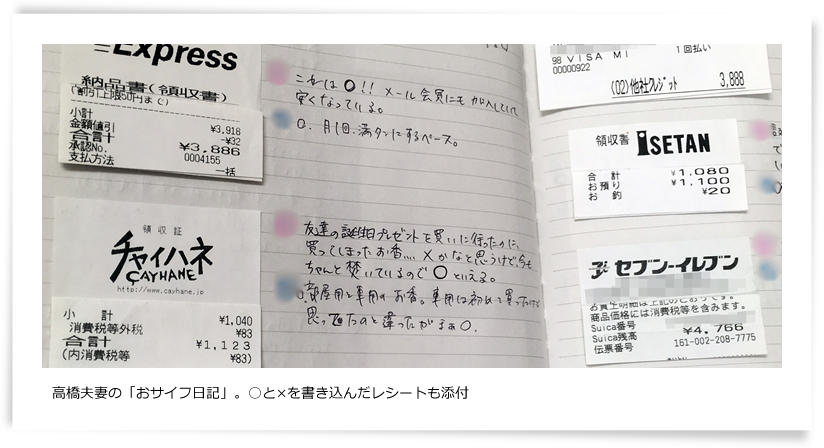 Express
納品書(領収書)
(割引上限50円まで)
小計 ¥3,918
金額値引 ¥32
合計 ¥3,886
承認No. 0004155
支払方法 一括
これは○!! メール会員にも加入していて
安くなっている。
○. 月1回.満タンにするペース。
領収証
チャイハネ
CAYHANE
http://www.cayhane.jp
小計 ¥1,040
消費税等外税 ¥83
合計 ¥1,123
(内消費税等 ¥83)
友達の誕生日プレゼントを買いに行ったのに、
買ってしまったお香.... ×かなと思うけど、今も
ちゃんと焚いているので○といえる。
○.部屋用と車用のお香。車用は初めて買ったけど
思ってたのと違ったがまぁ○.
98 VISA MI 1回払い
00000922
(02)他社クレジット 3,888
領収書 ISETAN
合計 ¥1,080
お預り ¥1,100
お釣 ¥20
セブン-イレブン
お買上明細は上記のとおりです。
商品価格には消費税等を含みます。
Suica番号
Suica残高 ¥4,766
伝票番号 161-002-208-7775
高橋夫妻の「おサイフ日記」。○と×を書き込んだレシートも添付